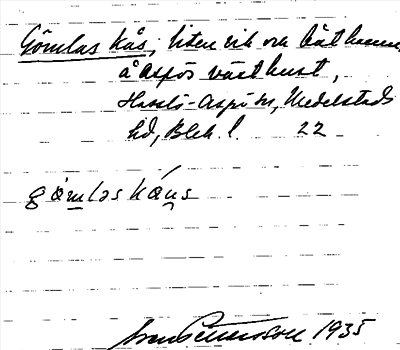 Gömlas Kås, liten vik och båthamn
å Aspös västkust,
Hasslö-Aspö sn, Medelstads
hd, Blek. l. 22
gömlas kåus
1935